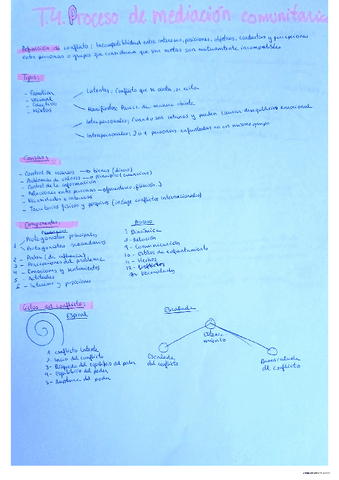 T.4. Proceso de mediación comunitaria
Definición de conflicto: Incompatibilidad entre intereses, posiciones, objetivos, conductas y percepciones
entre personas o grupos que consideran que sus metas son mutuamente incompatibles
Tipos:
- Familiar
- Vecinal
- Colectivo
- Mixtos
Latentes: Conflicto que se oculta, se evita
Manifiestos: Aparece de manera abierta
Intrapersonales: Cuando son internos y pueden causar desequilibrio emocional
Interpersonales: 2 o + personas enfrentadas en un mismo grupo
Causas:
- Control de recursos → bienes
- Problemas de valores →
- Control de la información
- Relaciones entre personas →
- Necesidades e intereses
- Territorios físicos y propios (incluye conflictos internacionales)
Componentes:
Principal
1 Protagonistas principales
Protagonistas secundarios
2 - Poder (de influencia)
3 - Percepciones del problema
4 - Emociones y sentimientos
5 - Actitudes
6 - Intereses y posiciones
Proceso
7 - Dinámica
8 - Relación
9 - Comunicación
10 - Estilos de enfrentamiento
11 - Hechos
12 -
Ciclos del conflicto:
Espiral
1 - Conflicto latente
2 - Inicio del conflicto
3 - Búsqueda del equilibrio del poder
4 - Equilibrio del poder
5 - Ruptura del poder
Escalada
Estancamiento
Escalada
del conflicto
Desescalada
del conflicto